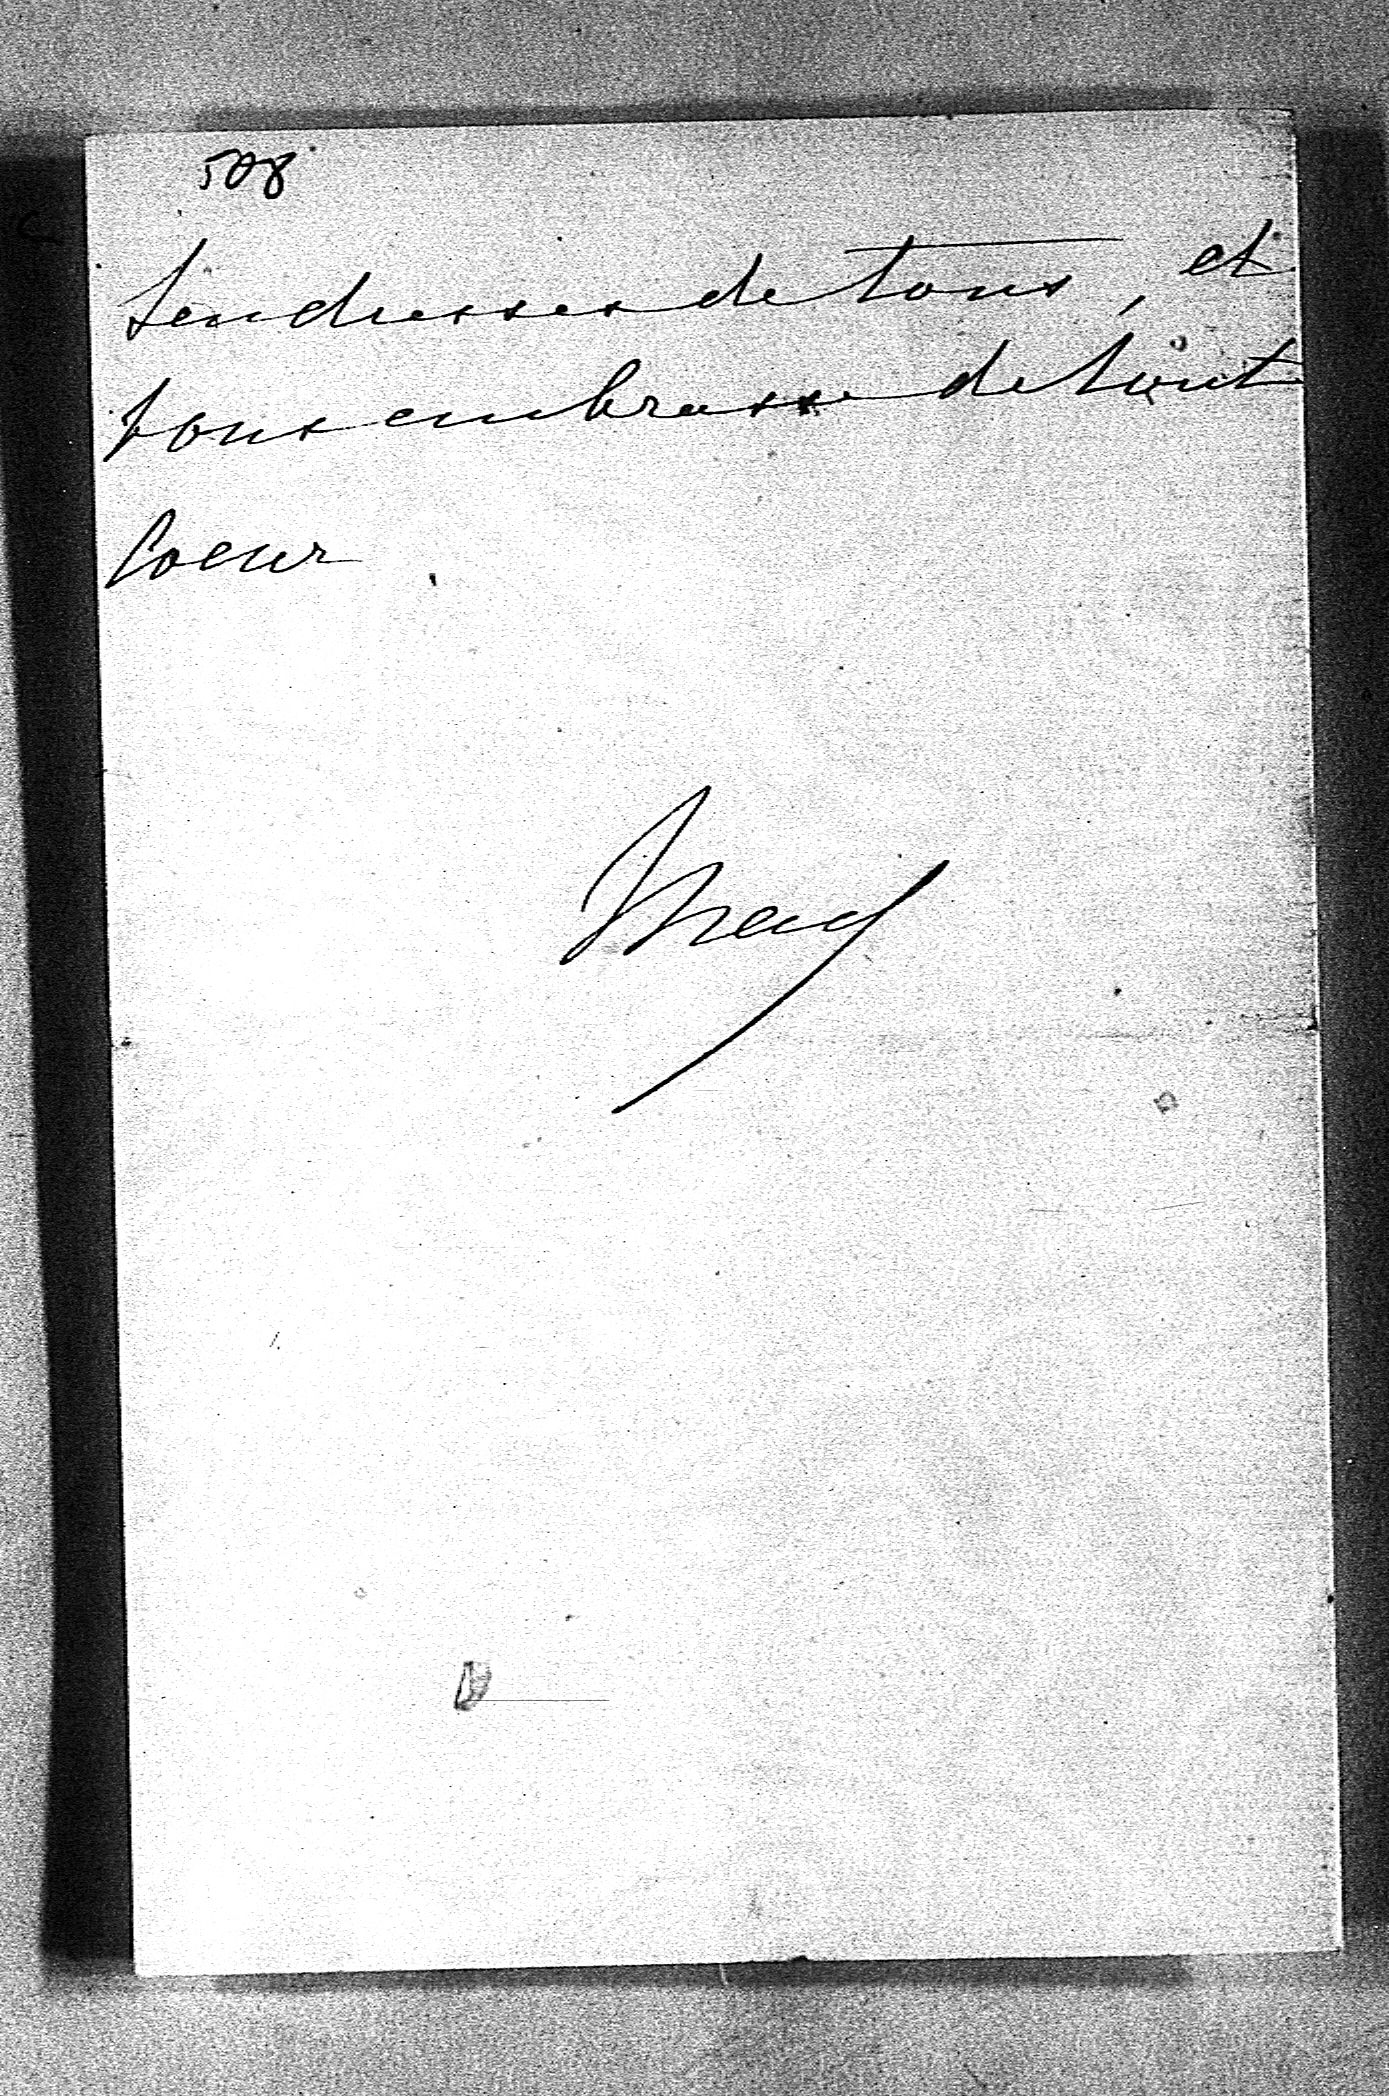 508
tendresses de tous, et
vous embrasse de tout
Coeur
May